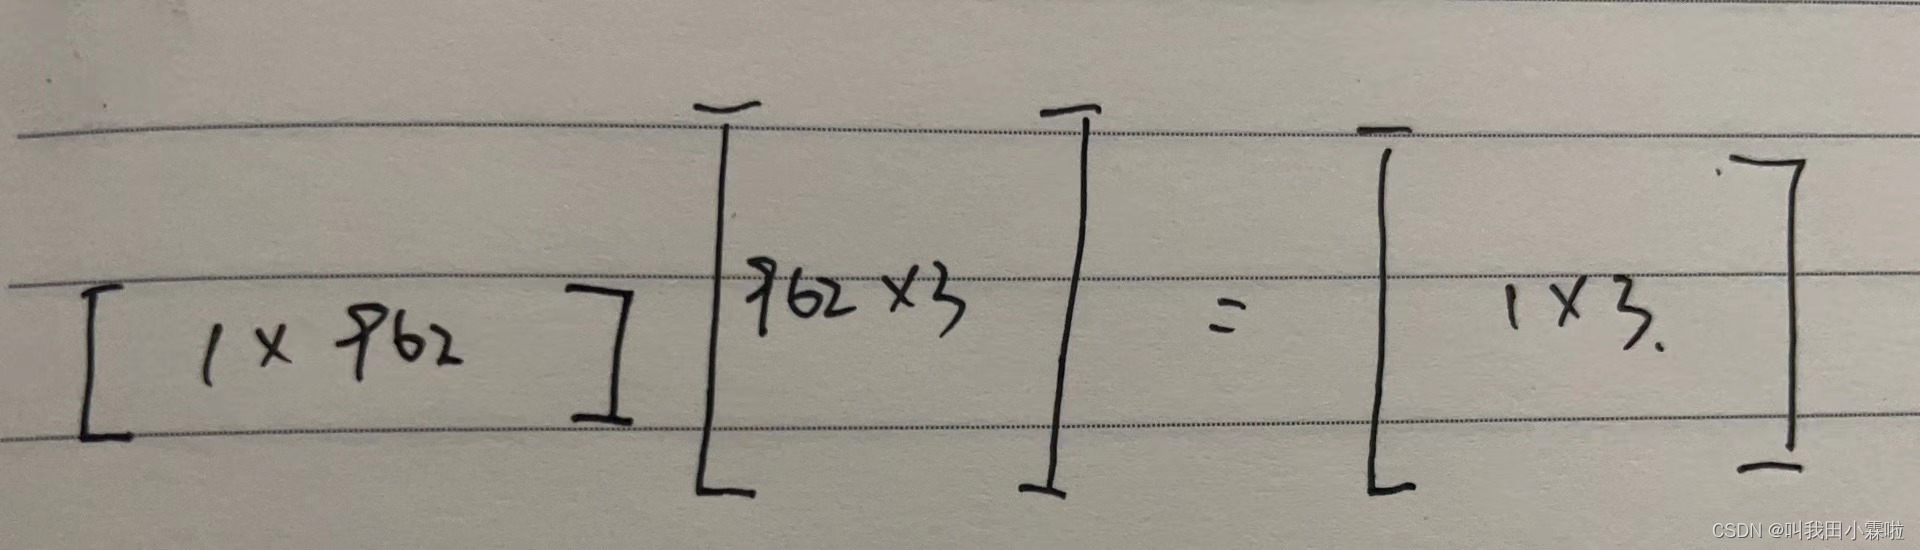 [ 1 × 962 ] [ 962 × 3 ] = [ 1 × 3. ]
CSDN @叫我田小霖啦